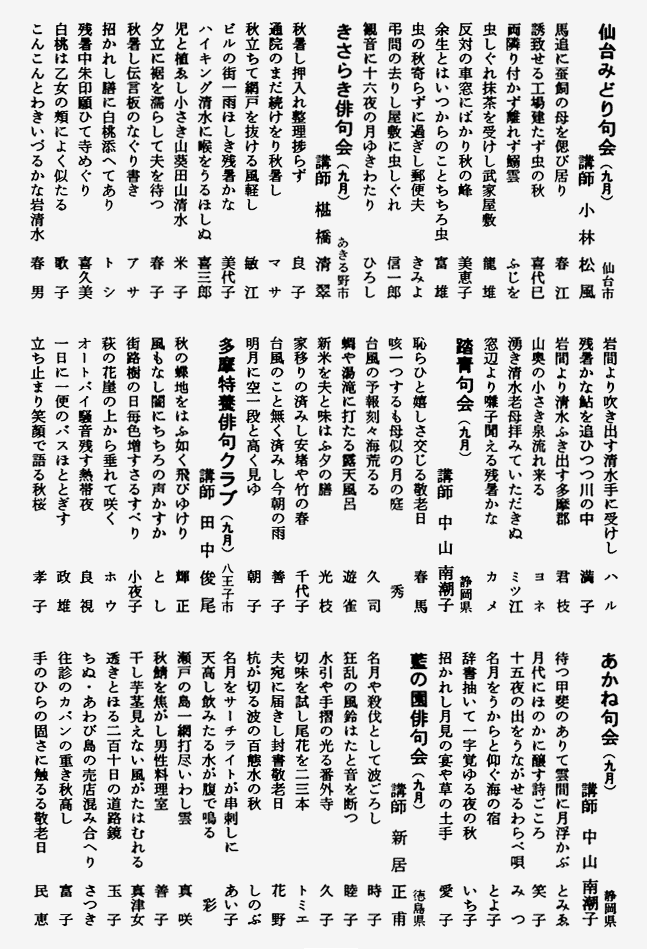 仙台みどり句会（九月）
仙台市
講師 小林松風
馬追に蚕飼の母を偲び居り 春江
誘致せる工場建たず虫の秋 喜代巳
両隣り付かず離れず鰯雲 ふじを
虫しぐれ抹茶を受けし武家屋敷 龍雄
反対の車窓にばかり秋の峰 美恵子
余生とはいつからのことちちろ虫 富雄
虫の秋寄らずに過ぎし郵便夫 きみよ
弔問の去りし屋敷に虫しぐれ 信一郎
観音に十六夜の月ゆきわたり ひろし
きさらき俳句会（九月）
あきる野市
講師 椹橋清翠
秋暑し押入れ整理捗らず 良子
通院のまだ続けをり秋暑し マサ
秋立ちて網戸を抜ける風軽し 敏江
ビルの街一雨ほしき残暑かな 美代子
ハイキング清水に喉をうるほしぬ 喜三郎
児と植ゑし小さき山葵田山清水 米子
夕立に裾を濡らして夫を待つ 春子
秋暑し伝言板のなぐり書き アサ
招かれし膳に白桃添へてあり トシ
残暑中朱印願ひて寺めぐり 喜久美
白桃は乙女の頬によく似たる 歌子
こんこんとわきいづるかな岩清水 春男
岩間より吹き出す清水手に受けし ハル
残暑かな鮎を追ひつつ川の中 満子
岩間より清水ふき出す多摩郡 君枝
山奥の小さき泉流れ来る ヨネ
湧き清水老母拝みていただきぬ ミツ江
窓辺より囃子聞える残暑かな カメ
踏青句会（九月）
静岡県
講師 中山南潮子
恥らひと嬉しさ交じる敬老日 春馬
咳一つするも母似の月の庭 秀
台風の予報刻々海荒るる 久司
蜩や湯滝に打たる露天風呂 遊雀
新米を夫と味はふ夕の膳 光枝
家移りの済みし安堵や竹の春 千代子
台風のこと無く済みし今朝の雨 善子
明月に空一段と高く見ゆ 朝子
多摩特養俳句クラブ（九月）
八王子市
講師 田中俊尾
秋の蝶地をはふ如く飛びゆけり 輝正
風もなし闇にちちろの声かすか とし
街路樹の日毎色増すさるすべり 小夜子
萩の花崖の上から垂れて咲く ホウ
オートバイ騒音残す熱帯夜 良視
一日に一便のバスほととぎす 政雄
立ち止まり笑顔で語る秋桜 孝子
あかね句会（九月）
静岡県
講師 中山南潮子
待つ甲斐のありて雲間に月浮かぶ とみゑ
月代にほのかに醸す詩ごころ 笑子
十五夜の出をうながせるわらべ唄 みつ
名月をうからと仰ぐ海の宿 とよ子
辞書抽いて一字覚ゆる夜の秋 いち子
招かれし月見の宴や草の土手 愛子
藍の園俳句会（九月）
徳島県
講師 新居正甫
名月や殺伐として波ごろし 時子
狂乱の風鈴はたと音を断つ 睦子
水引や手摺の光る番外寺 久子
切味を試し尾花を二三本 トミエ
夫宛に届きし封書敬老日 花野
杭が切る波の百態水の秋 しのぶ
名月をサーチライトが串刺しに あい子
天高し飲みたる水が腹で鳴る 彩
瀬戸の島一網打尽いわし雲 真咲
秋鯖を焦がし男性料理室 善子
干し芋茎見えない風がたはむれる 真津女
透きとほる二百十日の道路鏡 玉子
ちぬ・あわび島の売店混み合へり さつき
往診のカバンの重き秋高し 富子
手のひらの固さに触るる敬老日 民恵